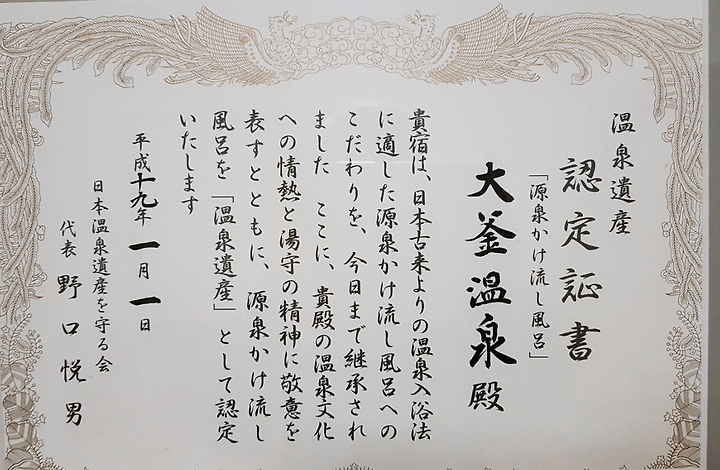 温泉遺産
認定証書
「源泉かけ流し風呂」
大釜温泉殿
貴宿は、日本古来よりの温泉入浴法
に適した源泉かけ流し風呂への
こだわりを、今日まで継承され
ました ここに、貴殿の温泉文化
への情熱と湯守の精神に敬意を
表すとともに、源泉かけ流し
風呂を「温泉遺産」として認定
いたします
平成十九年一月一日
日本温泉遺産を守る会
代表 野口悦男